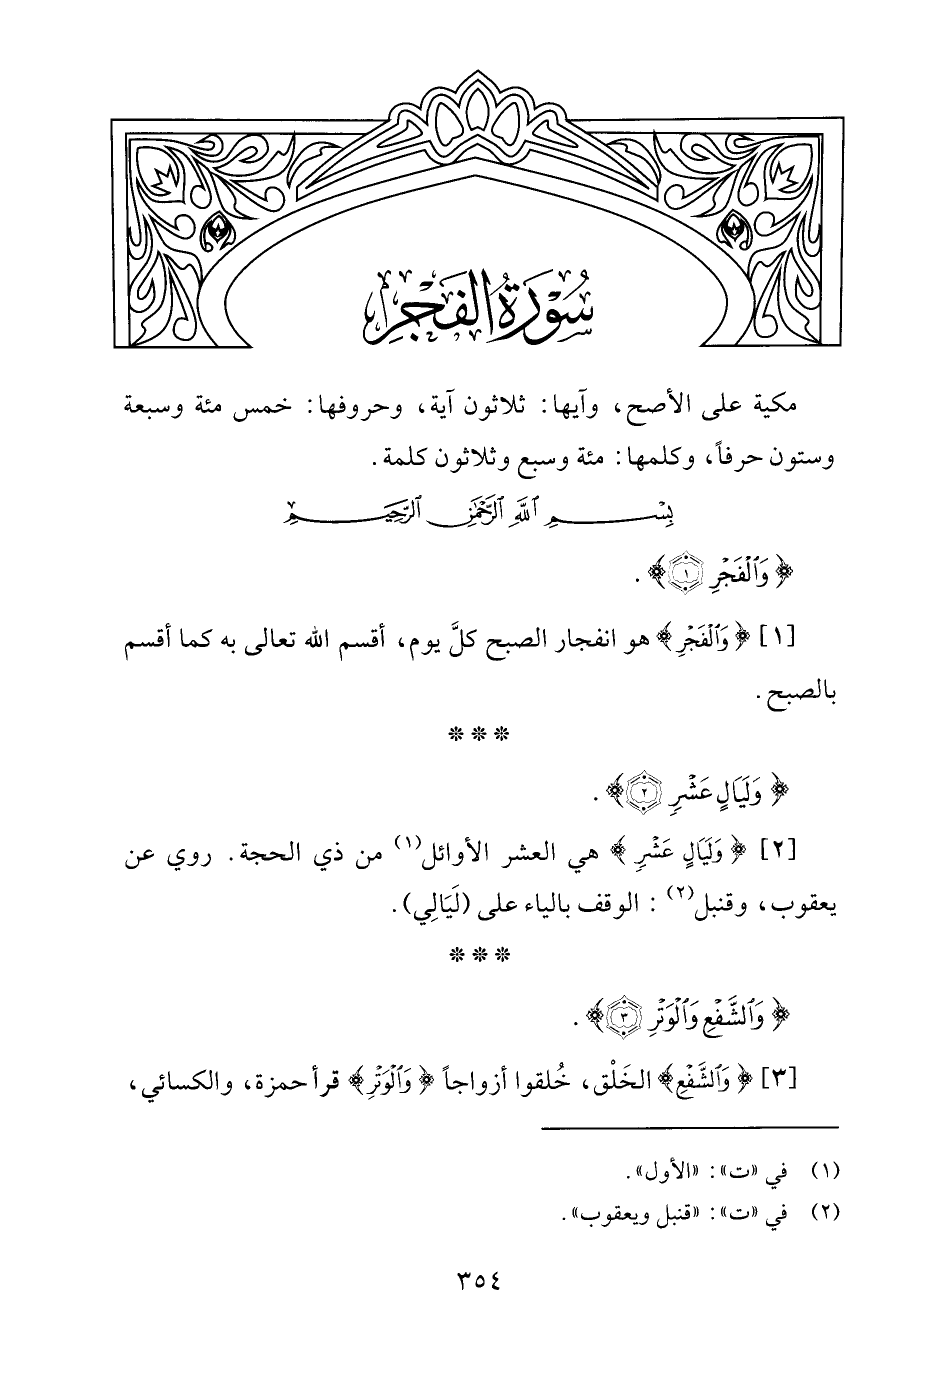 سُوْرَةُ الفَجْرِ
مكية على الأصح، وآيها: ثلاثون آية، وحروفها: خمس مئة وسبعة
وستون حرفاً، وكلمها: مئة وسبع وثلاثون كلمة.
بِسْمِ ٱللَّهِ ٱلرَّحْمَٰنِ ٱلرَّحِيمِ
﴿ وَٱلْفَجْرِ ١﴾ .
[١] ﴿ وَٱلْفَجْرِ ﴾ هو انفجار الصبح كلَّ يوم، أقسم الله تعالى به كما أقسم
بالصبح .
* * *
﴿ وَلَيَالٍ عَشْرٍ ٢﴾ .
[٢] ﴿ وَلَيَالٍ عَشْرٍ ﴾ هي العشر الأوائل(١) من ذي الحجة. روي عن
يعقوب، وقنبل(٢) : الوقف بالياء على (لَيَالِي).
* * *
﴿ وَٱلشَّفْعِ وَٱلْوَتْرِ ٣﴾ .
[٣] ﴿ وَٱلشَّفْعِ ﴾ الخَلْق، خُلقوا أزواجاً ﴿ وَٱلْوَتْرِ ﴾ قرأ حمزة، والكسائي،
(١) في «ت»: «الأول».
(٢) في «ت»: «قنبل ويعقوب».
٣٥٤